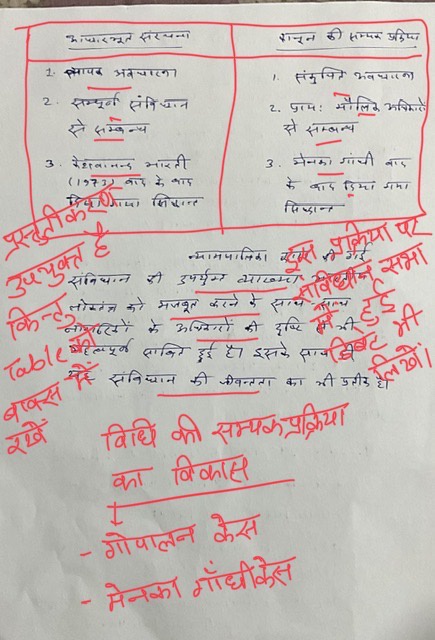 आधारभूत संरचना
1. व्यापक अवधारणा
2. सम्पूर्ण संविधान
से सम्बन्ध
3. केशवानन्द भारती
(1973) वाद के बाद
दिया गया सिद्धान्त
कानून की सम्यक प्रक्रिया
1. संकुचित अवधारणा
2. प्रायः मौलिक अधिकारों
से सम्बन्ध
3. मेनका गांधी वाद
के बाद दिया गया
सिद्धान्त
न्यायपालिका द्वारा की गई
संविधान की उपर्युक्त व्याख्या
लोकतंत्र को मजबूत करने के साथ-साथ
के अधिकारों की दृष्टि से भी
महत्वपूर्ण साबित हुई है। इसके साथ
यह संविधान की जीवन्तता का भी प्रतीक है।
प्रस्तुतीकरण
उपयुक्त है
किन्तु
Table को
बाक्स में
रखें
इस प्रक्रिया पर
संविधान सभा
में हुई
डिबेट भी
लिखें।
विधि की सम्यक प्रक्रिया
का विकास
- गोपालन केस
- मेनका गाँधी केस